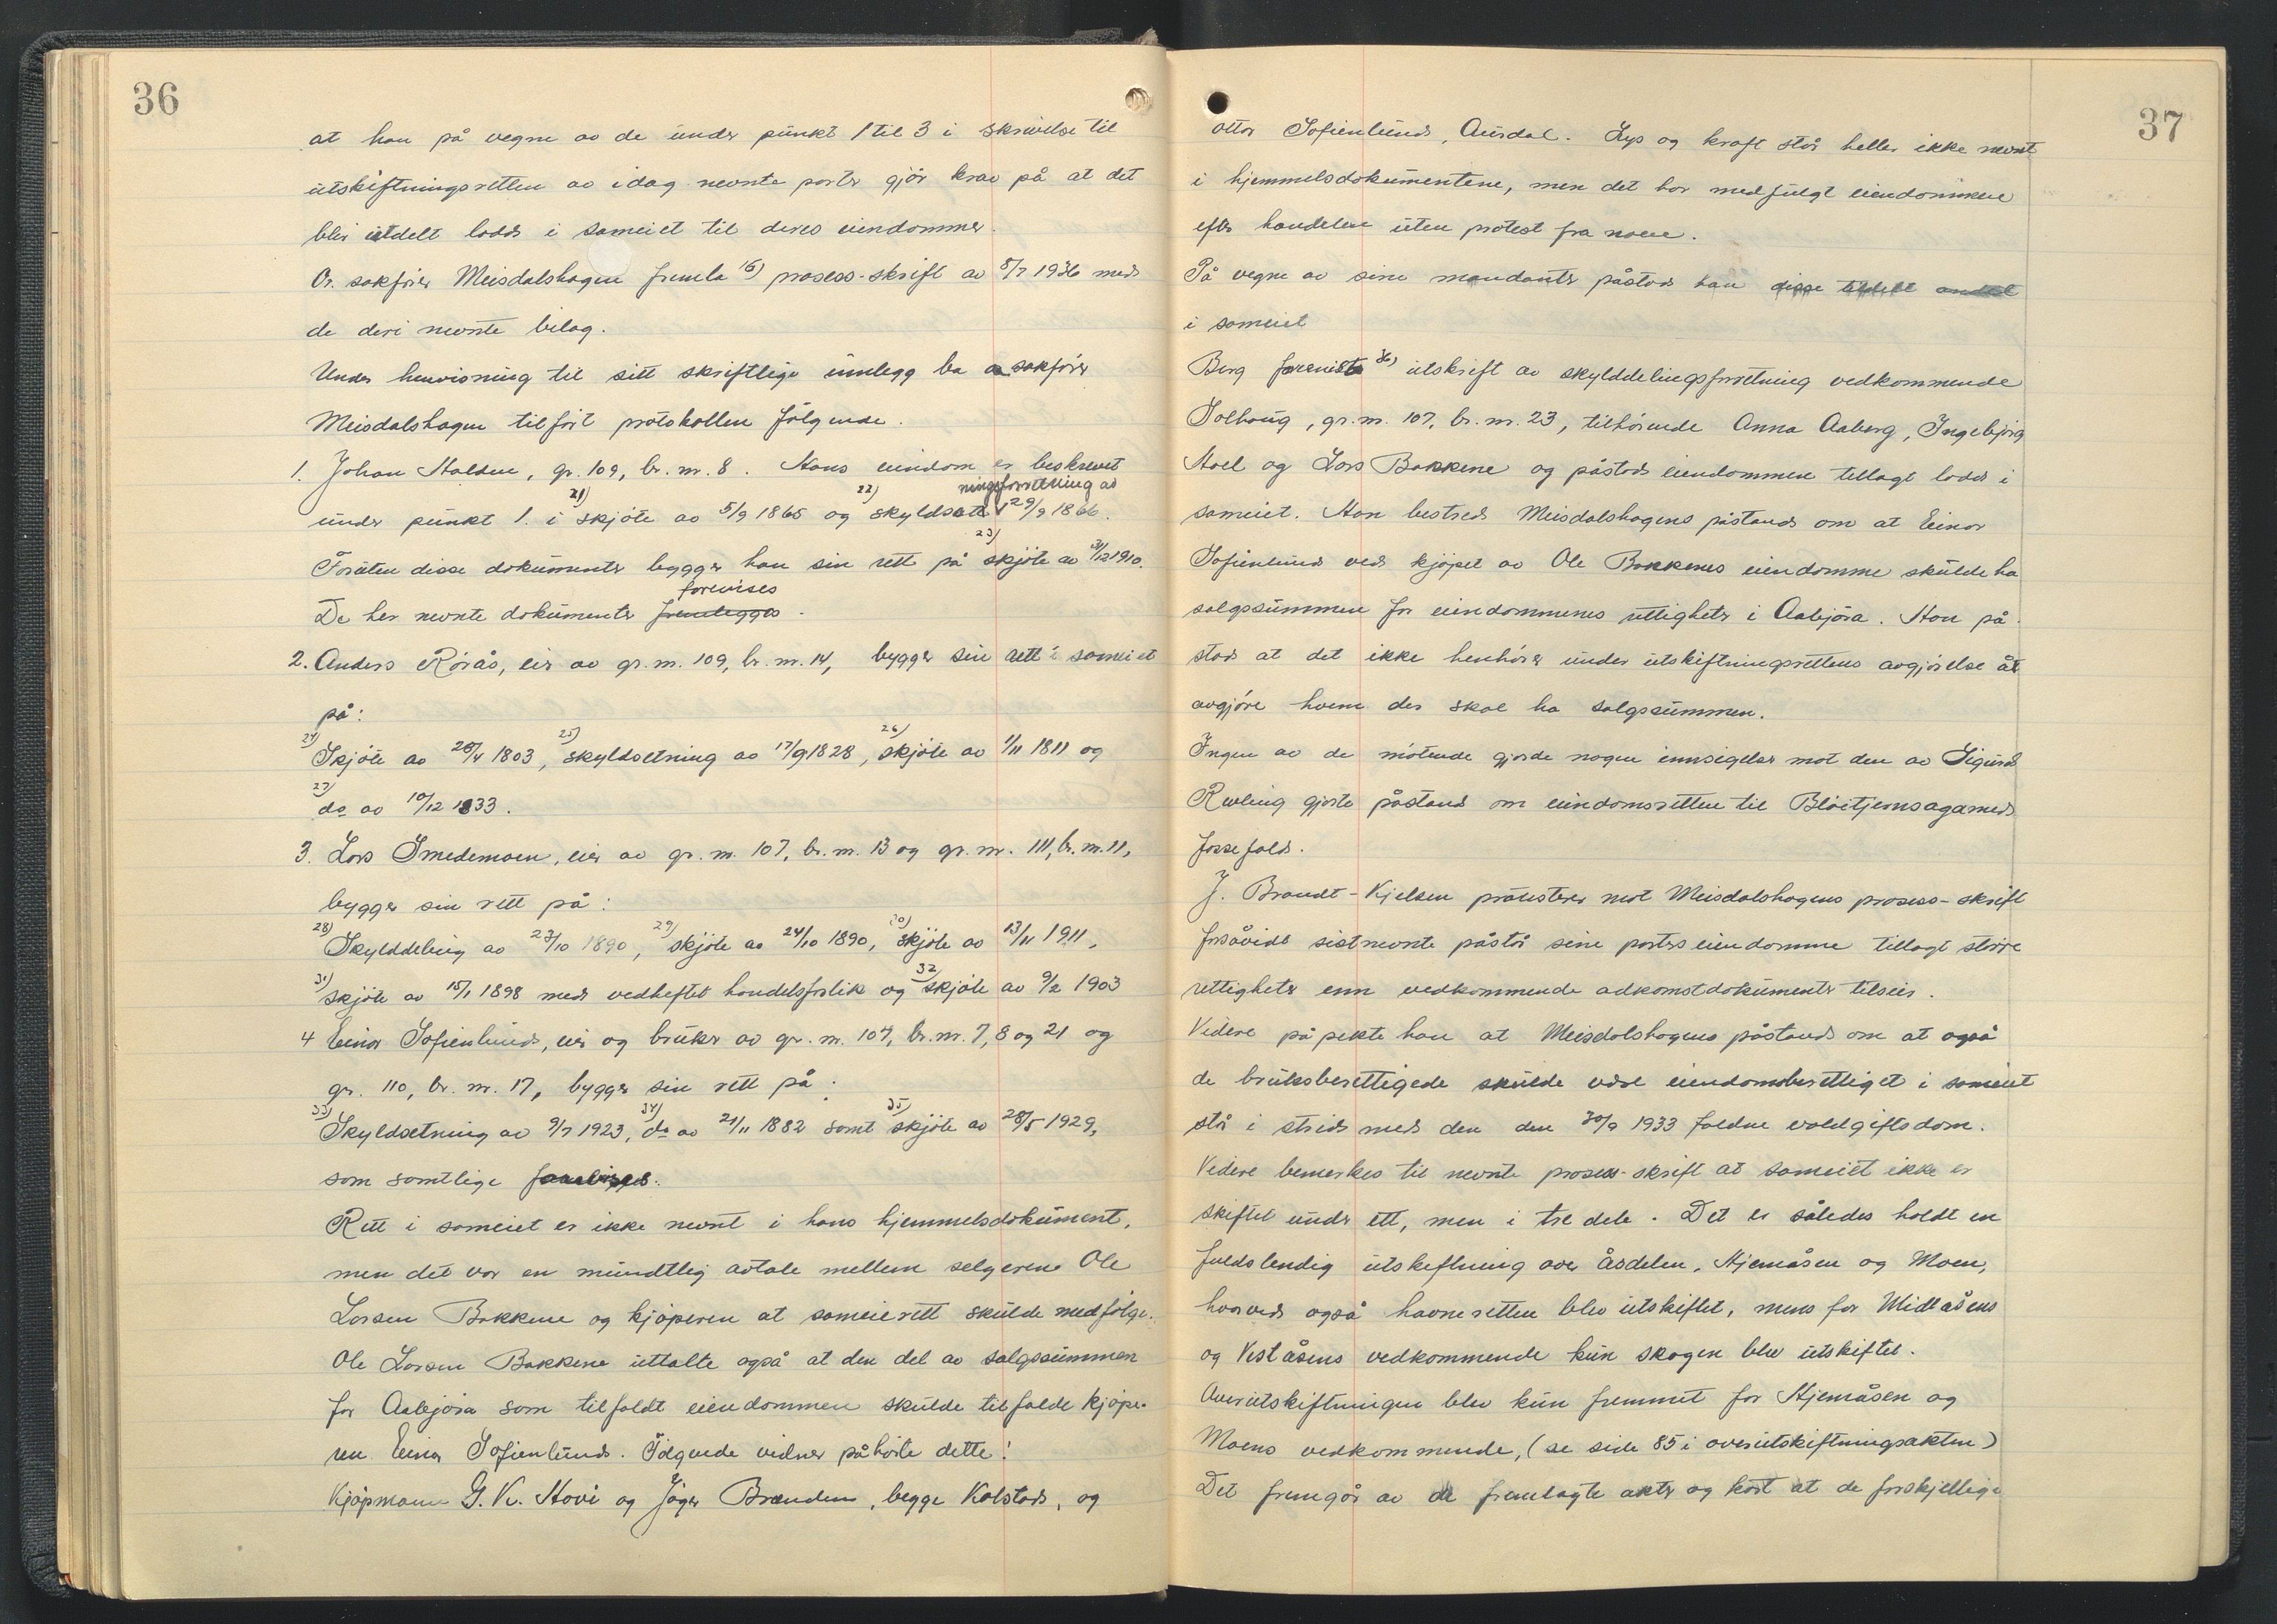 36
at han på vegne av de under punkt 1 til 3 i skrivelse til
utskiftningsretten av idag nevnte parter gjör krav på at det
blir utdelt lodd i sameiet til deres eiendommer.
Or. sakförer Meisdalshagen fremla 16) prosess-skrift av 8/7 1936 med
de deri nevnte bilag.
Under henvisning til sitt skriftlige innlegg ba o. sakförer
Meisdalshagen tilfört protokollen fölgende.
1. Johan Stalsen, gr. 109, br. nr. 8. Hans eiendom er beskrevet
21) 22) ningsforretning av
under punkt 1. i skjöte av 5/9 1865 og skyldsett 29/9 1866.
23)
Foruten disse dokumenter bygger han sin rett på skjöte av 31/12 1910.
forevises
De her nevnte dokumenter fremlegges.
2. Anders Rörås, eier av gr. nr. 109, br. nr. 14, bygger sin rett i sameiet
på:
24) 25) 26)
Skjöte av 28/4 1803, skyldsetning av 17/9 1828, skjöte av 1/11 1811 og
27)
do av 10/12 1833.
3. Lars Smedemoen, eier av gr. nr. 107, br. nr. 13 og gr. nr. 111, br. nr. 11,
bygger sin rett på:
28) 29) 30)
Skylddeling av 23/10 1890, skjöte av 24/10 1890, skjöte av 13/11 1911,
31) 32
skjöte av 15/1 1898 med vedheftet handelsforlik og skjöte av 9/2 1903
4 Einar Sofienlund, eier og bruker av gr. nr. 107, br. nr. 7, 8 og 21 og
gr. 110, br. nr. 17, bygger sin rett på:
33) 34) 35)
Skyldsetning av 9/7 1923, do av 21/11 1882 samt skjöte av 28/5 1929,
som samtlige
Rett i sameiet er ikke nevnt i hans hjemmelsdokument,
men det var en mundtlig avtale mellem selgeren Ole
Larsen Bakkene og kjöperen at sameierett skulde medfölge.
Ole Larsen Bakkene uttalte også at den del av salgssummen
for Aabjöra som tilfaldt eiendommen skulde tilfalde kjöpe-
ren Einar Sofienlund. Fölgende vidner påhörte dette:
Kjöpmann G. K. Hovi og Jöger Brenden, begge Kolstad, og
37
ottar Sofienlund, Aurdal. Lys og kraft står heller ikke nevnt
i hjemmelsdokumentene, men det har medfulgt eiendommene
efter handelen uten protest fra noen.
På vegne av sine mandanter påstod han disse tildelt andel
i sameiet
Berg foreviste 36) utskrift av skylddelingsforretning vedkommende
Solhaug, gr. nr. 107, br. nr. 23, tilhörende Anna Aaberg, Ingebjörg
Hoel og Lars Bakkene og påstod eiendommen tillagt lodd i
sameiet. Han bestred Meisdalshagens påstand om at Einar
Sofienlund ved kjöpet av Ole Bakkenes eiendomme skulde ha
salgssummen for eiendommenes rettigheter i Aabjöra. Han på-
stod at det ikke henhörer under utskiftningsrettens avgjörelse åt
avgjöre hvem der skal ha salgssummen.
Ingen av de mötende gjorde nogen innsigelser mot den av Sigurd
Revling gjorte påstand om eiendomsretten til Blåitjernsaga med
fossefald.
J. Brandt-Kjelsen protesterer mot Meisdalshagens prosess-skrift
forsåvidt sistnevnte påstår sine parters eiendomme tillagt större
rettigheter enn vedkommende adkomstdokumenter tilsier.
Videre påpekte han at Meisdalshagens påstand om at også
de bruksberettigede skulde være eiendomsberettiget i sameiet
står i strid med den den 30/9 1933 faldne voldgiftsdom.
Videre bemerkes til nevnte prosess-skrift at sameiet ikke er
skiftet under ett, men i tre dele. Det er således holdt en
fuldstendig utskiftning over Åsdelen, Hjemåsen og Moen,
hvorved også havneretten blev utskiftet, mens for Midtåsens
og Veståsens vedkommende kun skogen blev utskiftet.
Overutskiftningen blev kun fremmet for Hjemåsen og
Moens vedkommende, (se side 85 i overutskiftningsakten)
Det fremgår av de fremlagte akter og kart at de forskjellige